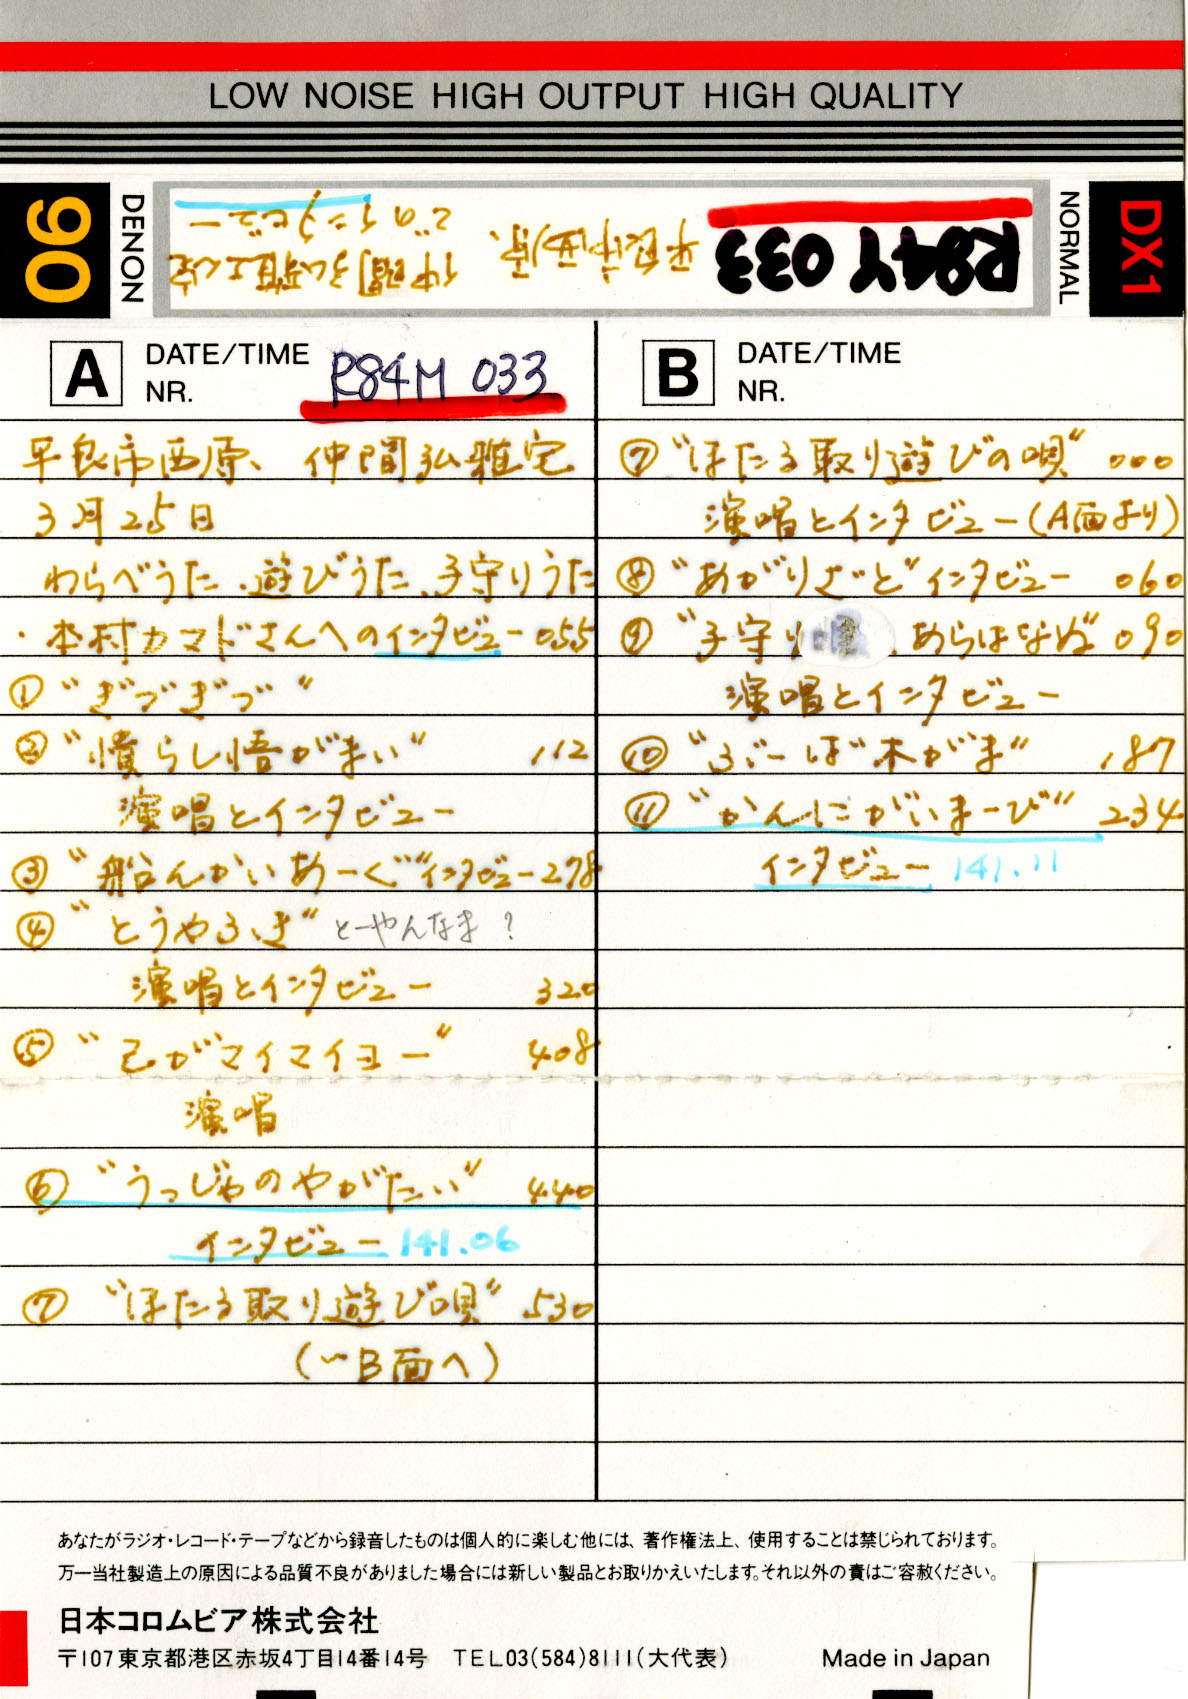 LOW NOISE HIGH OUTPUT HIGH QUALITY
90
DENON
R84Y 033
平良市西原、
仲間弘雅宅
でのインタビュー
NORMAL
DX1
A DATE/TIME
NR.
R84M 033
平良市西原、 仲間弘雅宅
3月25日
わらべうた.遊びうた.子守りうた
・本村カマドさんへのインタビュー055
① "ぎづぎづ"
② "憤らし悟がまい" 112
演唱とインタビュー
③ "船んかいあーぐ"インタビュー278
④ "とうやふぎ" とーやんなま?
演唱とインタビュー 320
⑤ "己がマイマイヨー" 408
演唱
⑥ "うっじゃのやがたい" 440
インタビュー 141.06
⑦ "ほたる取り遊び唄" 530
(〜B面へ)
B DATE/TIME
NR.
⑦ "ほたる取り遊びの唄" 000
演唱とインタビュー(A面より)
⑧ "あがりざと"インタビュー 060
⑨ "子守り あらはなぬ" 090
演唱とインタビュー
⑩ "ぶーば木がま" 187
⑪ "かんにがいまーび" 234
インタビュー 141.11
あなたがラジオ・レコード・テープなどから録音したものは個人的に楽しむ他には、著作権法上、使用することは禁じられております。
万一当社製造上の原因による品質不良がありました場合には新しい製品とお取りかえいたします。それ以外の責はご容赦ください。
日本コロムビア株式会社
〒107東京都港区赤坂4丁目14番14号 TEL.03(584)8111(大代表) Made in Japan